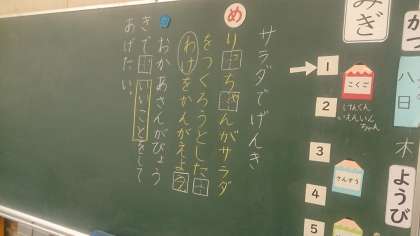 サラダでげんき
め
りっちゃんがサラダ
をつくろうとした
わけをかんがえよう
おかあさんがびょう
きで、いいことをして
あげたい。
みぎ
が
つ
八
日
木
ようび
1
こくご
2
3
さんすう
4
5